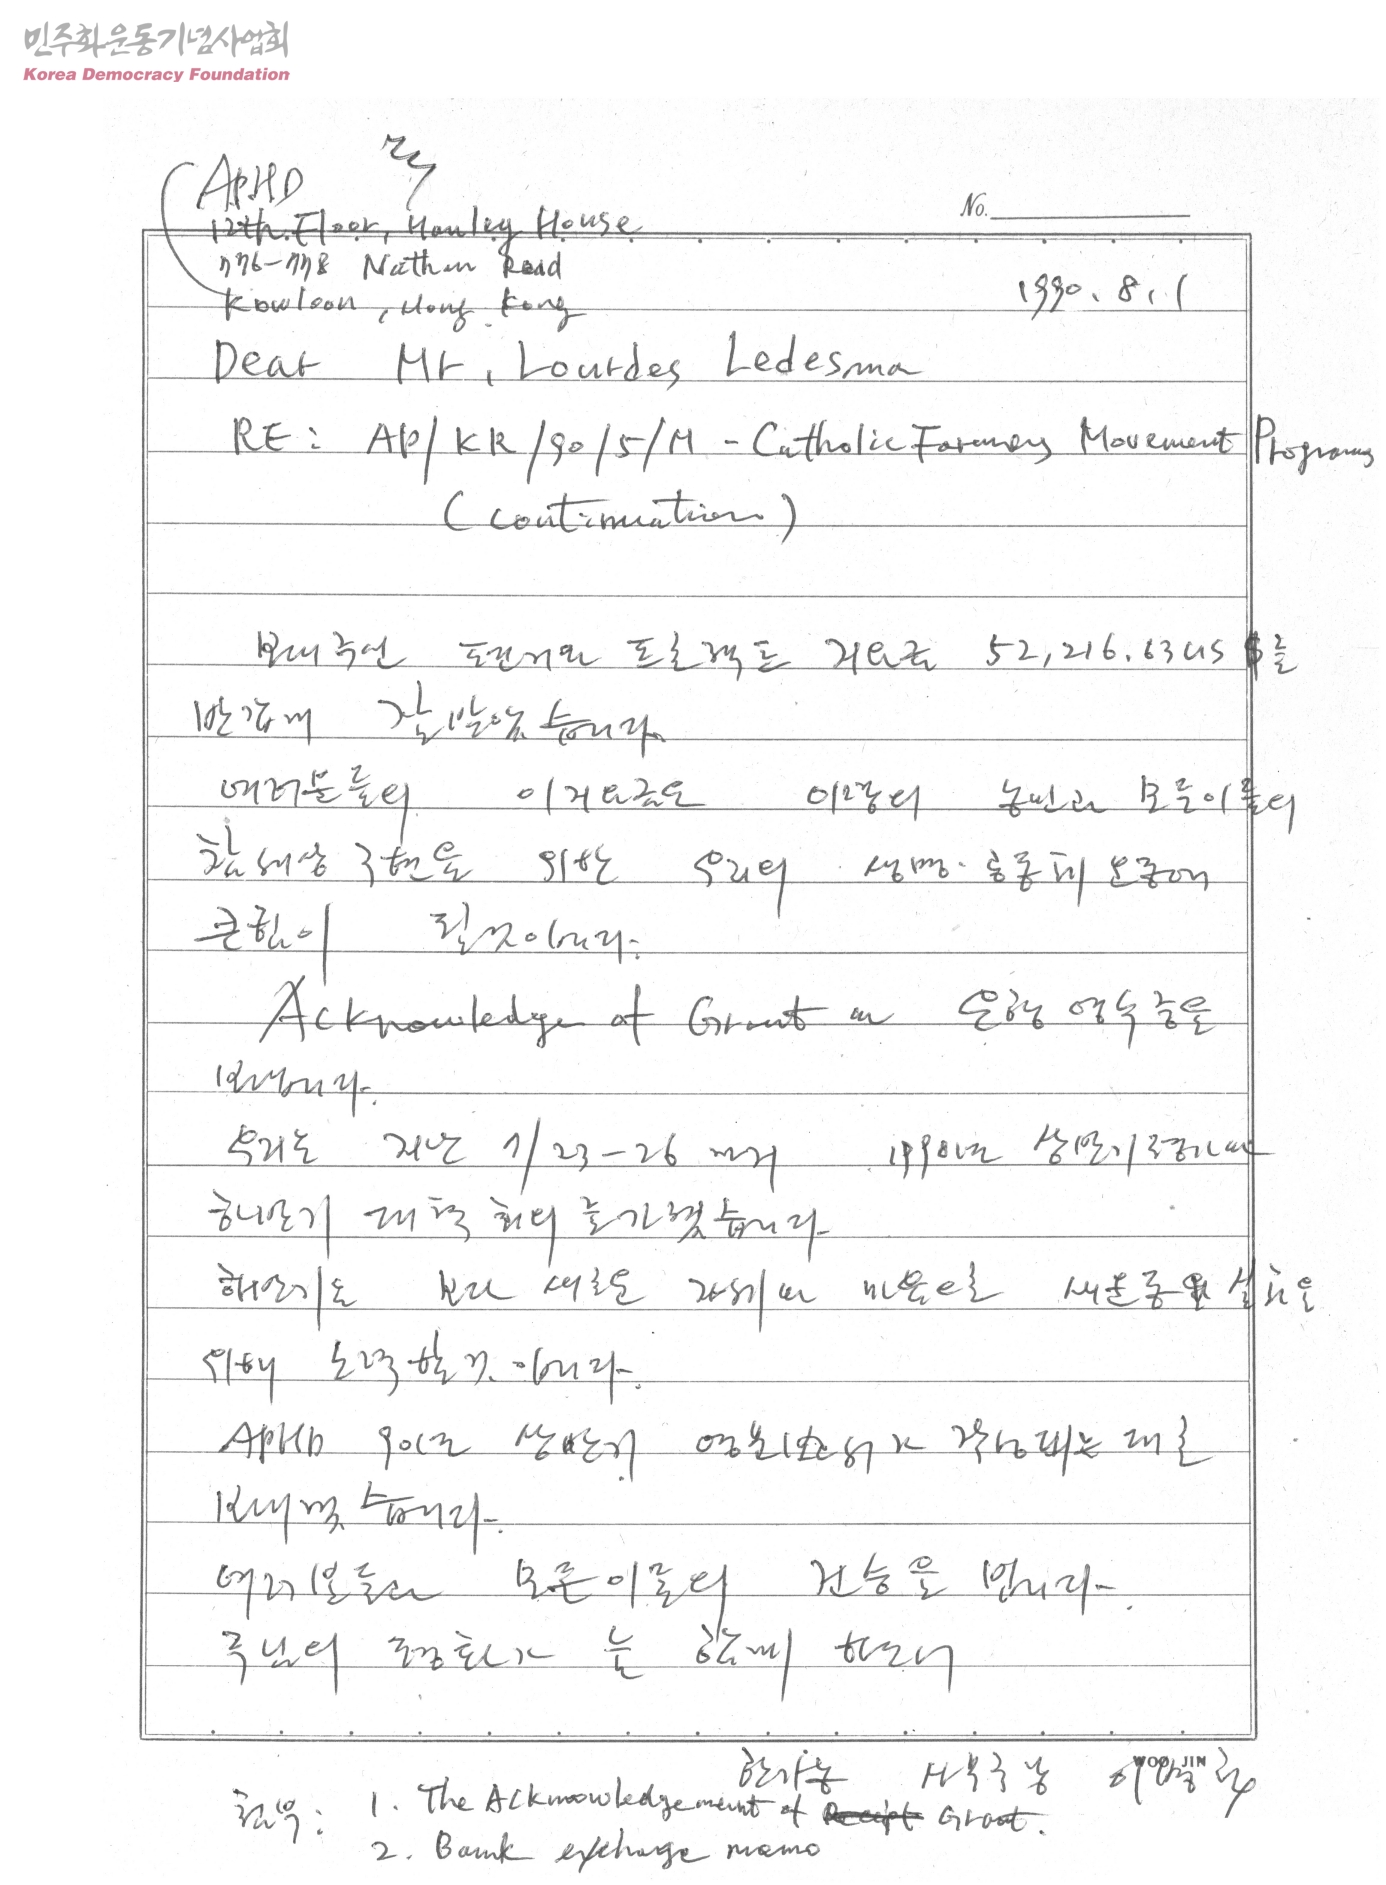 민주화운동기념사업회
Korea Democracy Foundation
APHD
12th. Floor, Hanley House
776-778 Nathan Road
Kowloon, Hong Kong
No.
1990. 8. 1
Dear Mr, Lourdes Ledesma
RE: AP/KR/90/5/M - Catholic Farmers Movement Programs
(continuation)
보내주신 편지와 프로젝트 지원금 52,216.63 US $를
반갑게 잘 받았습니다.
여러분들의 이 지원금은 이땅의 농민과 모든이들의
참세상 구현을 위한 우리의 생명·공동체 운동에
큰힘이 될것입니다.
Acknowledge of Grant와 은행 영수증을
보냅니다.
우리는 지난 7/23-26 까지 1990년 상반기 평가와
하반기 대책회의를 가졌습니다.
하반기도 보다 새로운 자세와 마음으로 새운동의 실천을
위해 노력할것입니다.
APHD 90년 상반기 영문보고서가 작성되는대로
보내겠습니다.
여러분들과 모든이들의 건승을 빕니다.
주님의 평화가 늘 함께 하소서
한가농 사무국장
WOO JIN
첨부: 1. The Acknowledgement of Receipt Grant.
2. Bank exchange memo